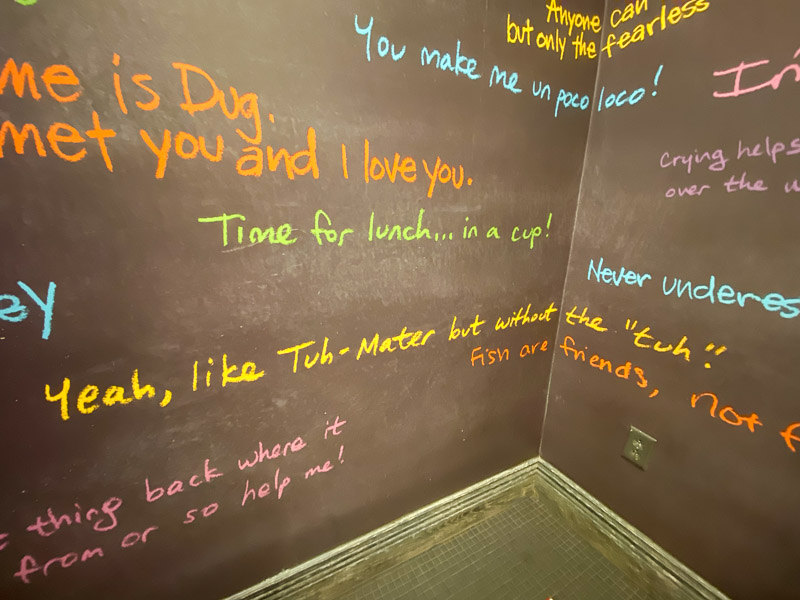 Anyone can
but only the fearless
You make me un poco loco!
me is Dug.
met you and I love you.
crying helps
over the
Time for lunch... in a cup!
Never underes
ey
Yeah, like Tuh-Mater but without the "tuh."
Fish are friends, not f
thing back where it
from or so help me!